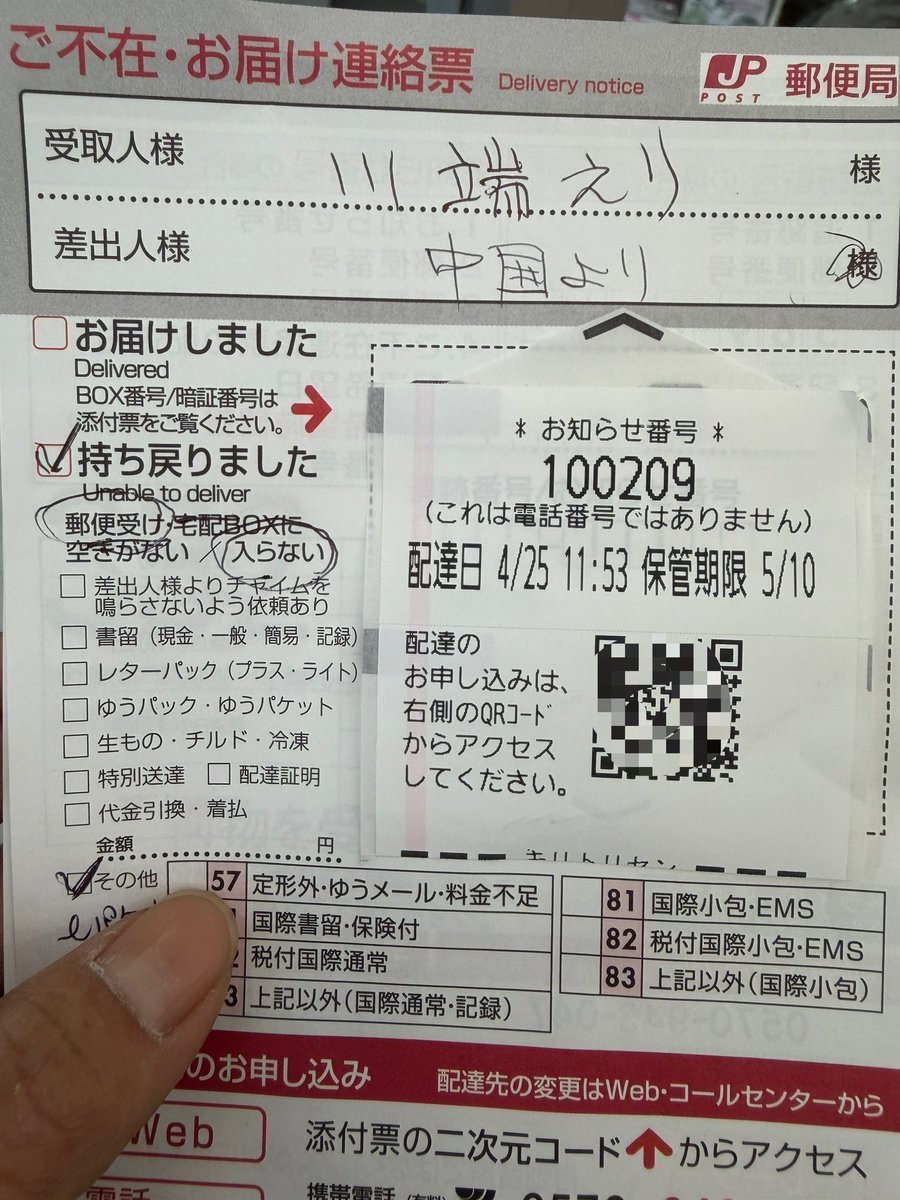 ご不在・お届け連絡票 Delivery notice JP POST 郵便局
受取人様 川端えり 様
差出人様 中国より 様
お届けしました
Delivered
BOX番号/暗証番号は
添付票をご覧ください。
持ち戻りました
Unable to deliver
郵便受け・宅配BOXに
空きがない / 入らない
差出人様よりチャイムを
鳴らさないよう依頼あり
書留（現金・一般・簡易・記録）
レターパック（プラス・ライト）
ゆうパック・ゆうパケット
生もの・チルド・冷凍
特別送達 配達証明
代金引換・着払
金額 円
その他
* お知らせ番号 *
100209
(これは電話番号ではありません)
配達日 4/25 11:53 保管期限 5/10
配達の
お申し込みは、
右側のQRコード
からアクセス
してください。
キリトリセン
57 定形外・ゆうメール・料金不足
国際書留・保険付
税付国際通常
3 上記以外（国際通常・記録）
81 国際小包・EMS
82 税付国際小包・EMS
83 上記以外（国際小包）
のお申し込み 配達先の変更はWeb・コールセンターから
Web 添付票の二次元コード からアクセス
電話 携帯電話（有料） 0570